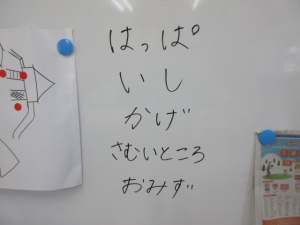 はっぱ
いし
かげ
さむいところ
おみず